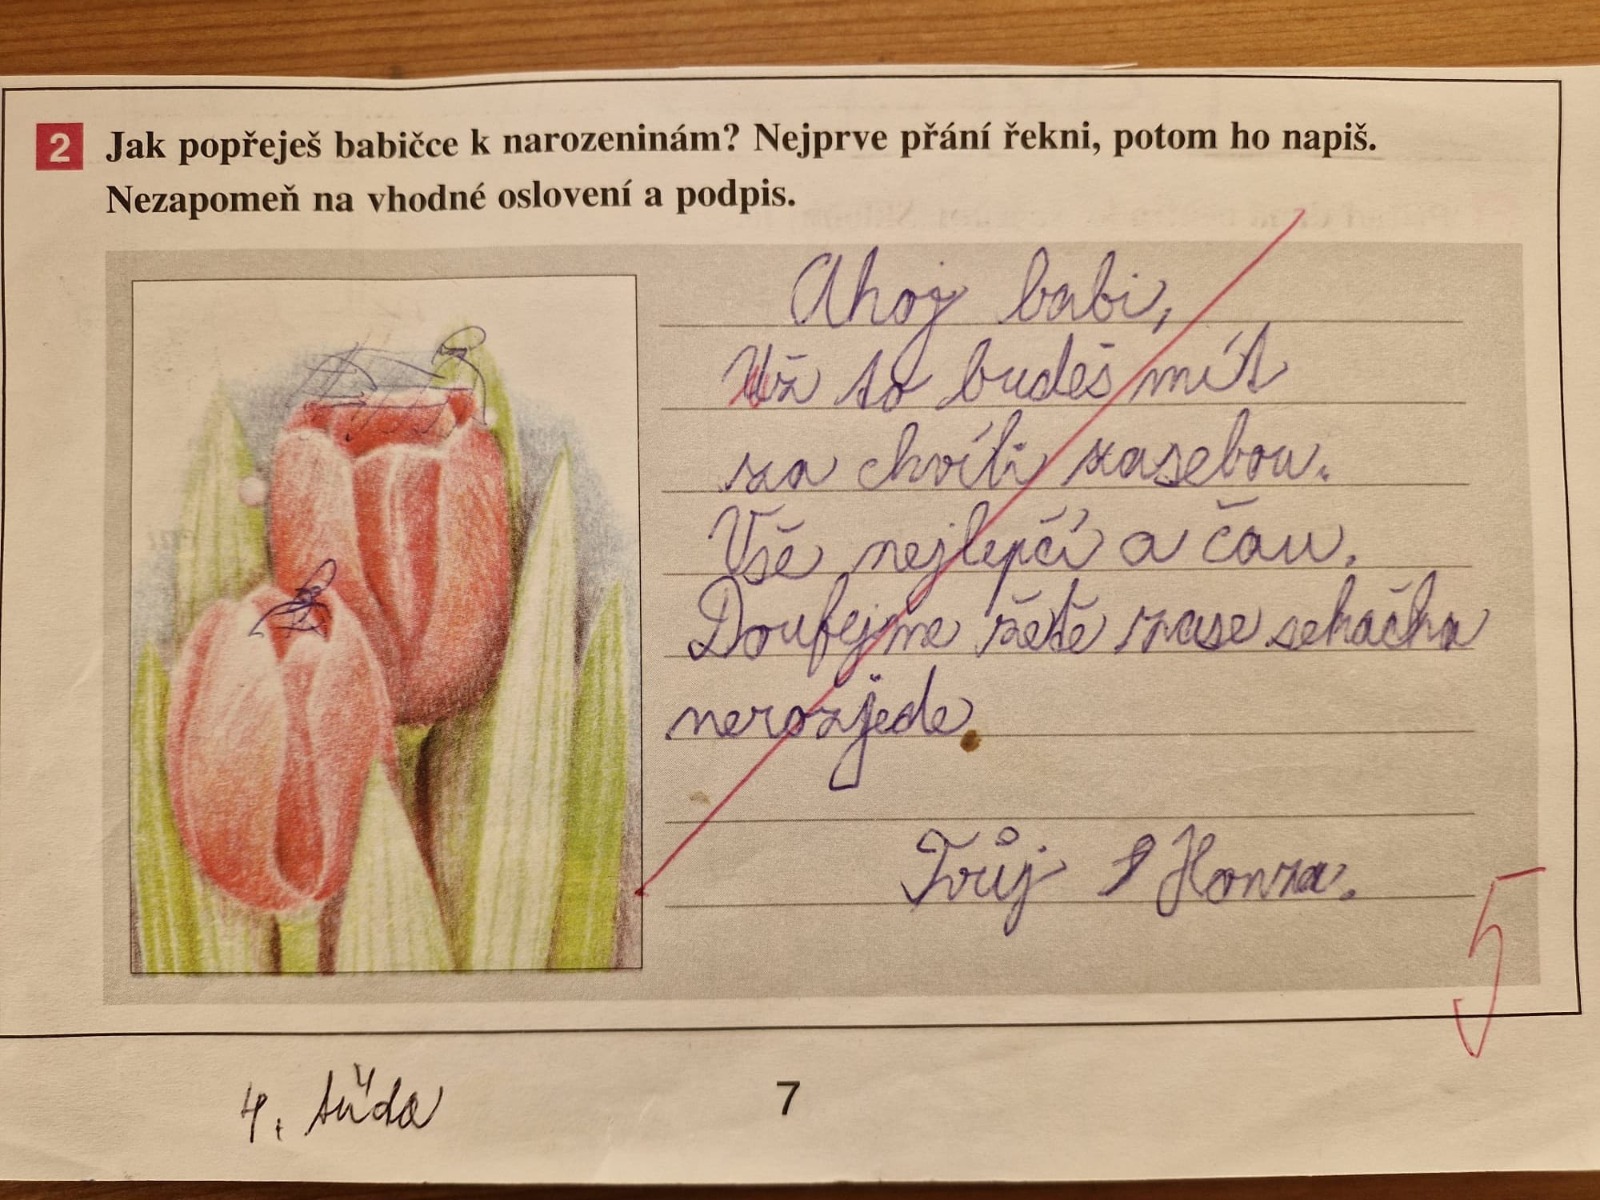 2 Jak popřeješ babičce k narozeninám? Nejprve přání řekni, potom ho napiš.
Nezapomeň na vhodné oslovení a podpis.
Ahoj babi,
Už to budeš mít
za chvíli zasebou.
Vše nejlepčí a čau.
Doufejme žetě zase sekačka
nerozjede.
Tvůj Honza.
5
4. třída
7